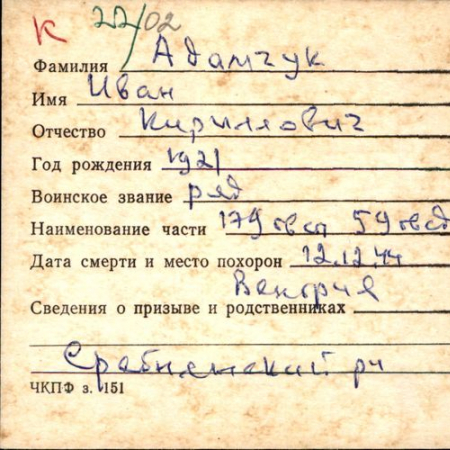 К 22/02
Фамилия Адамчук
Имя Иван
Отчество Кириллович
Год рождения 1921
Воинское звание ряд
Наименование части 179 гвсп 59 гвсд
Дата смерти и место похорон 12.12.44
Венгрия
Сведения о призыве и родственниках
Сребнянский рч
ЧКПФ з. 151